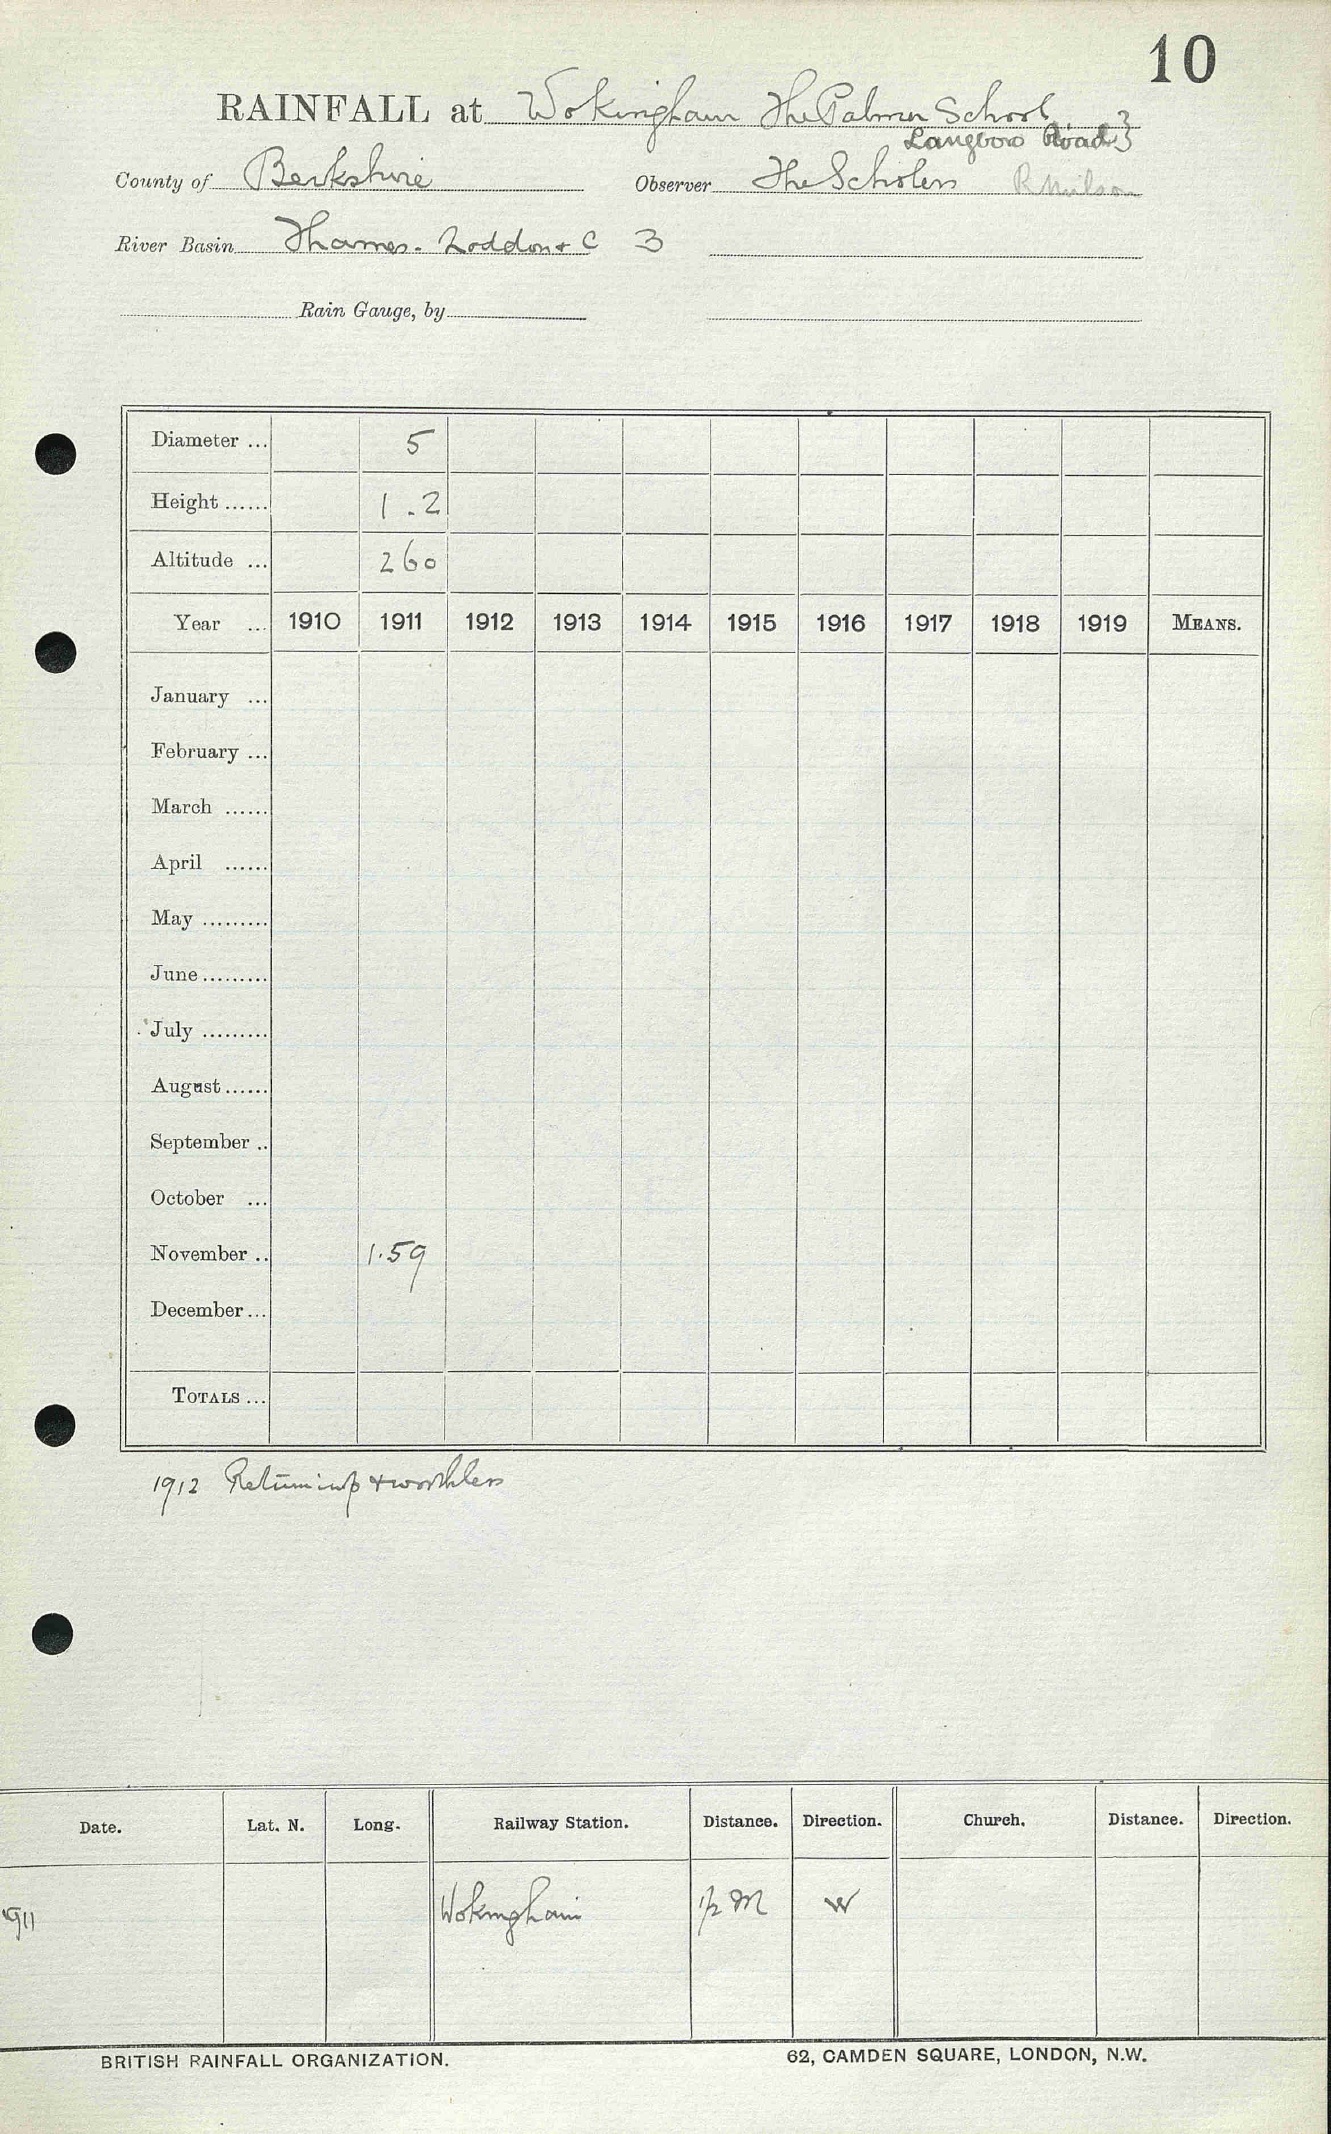 10
RAINFALL at Wokingham The Palmer School }
Langboro Road }
County of Berkshire Observer The Scholars R Milson
River Basin Thames - Loddon & C 3
Rain Gauge, by
Diameter ... 5
Height ...... 1.2
Altitude ... 260
Year ... 1910 1911 1912 1913 1914 1915 1916 1917 1918 1919 MEANS.
January ...
February ...
March ......
April ......
May .........
June .........
July .........
August ......
September ..
October ...
November .. 1.59
December ...
TOTALS ...
1912 Return imp & worthless
Date. Lat. N. Long. Railway Station. Distance. Direction. Church. Distance. Direction.
1911 Wokingham 1/2 M W
BRITISH RAINFALL ORGANIZATION. 62, CAMDEN SQUARE, LONDON, N.W.